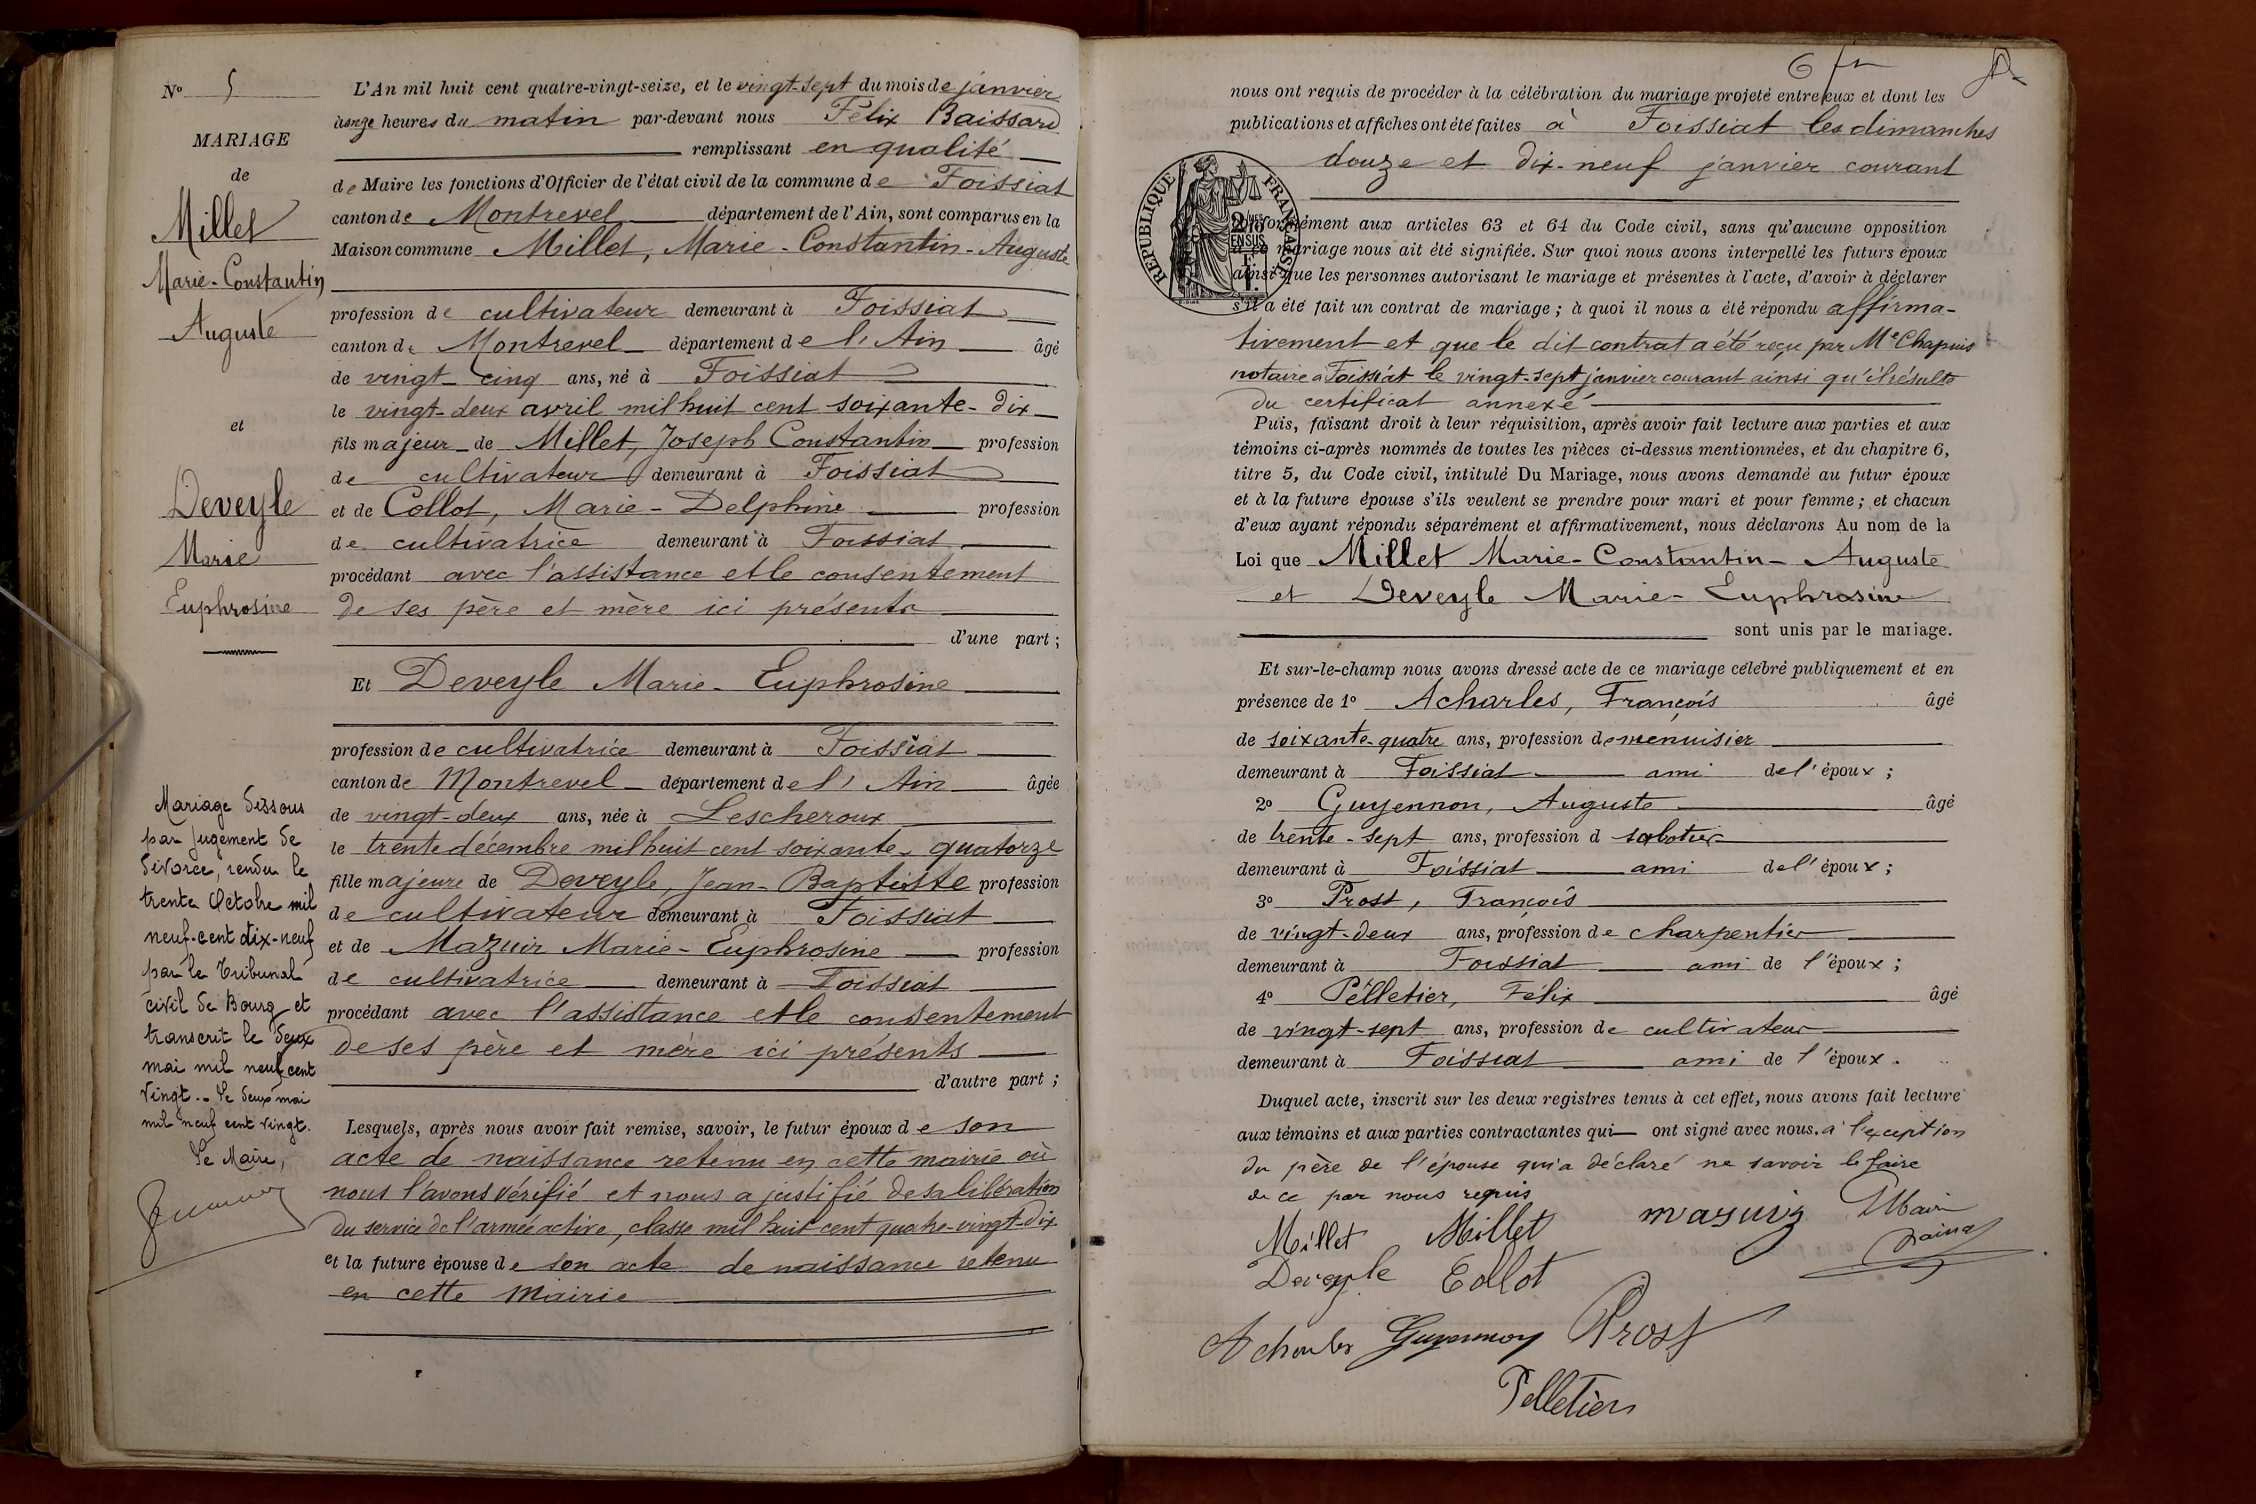 Nº 5
MARIAGE
de
Millet
Marie-Constantin
Auguste
et
Deveyle
Marie
Euphrosine
Mariage dissous
par jugement de
divorce, rendu le
trente Octobre mil
neuf-cent dix-neuf
par le Tribunal
civil de Bourg et
transcrit le deux
mai mil neuf cent
vingt.- Le deux mai
mil neuf cent vingt.
Le Maire,
L'An mil huit cent quatre-vingt-seize, et le vingt-sept du mois de janvier
à onze heures du matin par-devant nous Félix Baissard
remplissant en qualité
de Maire les fonctions d'Officier de l'état civil de la commune de Foissiat
canton de Montrevel département de l'Ain, sont comparus en la
Maison commune Millet, Marie-Constantin-Auguste
profession de cultivateur demeurant à Foissiat
canton de Montrevel département de l'Ain âgé
de vingt-cinq ans, né à Foissiat
le vingt-deux avril mil huit cent soixante-dix
fils majeur de Millet, Joseph Constantin profession
de cultivateur demeurant à Foissiat
et de Collot, Marie-Delphine profession
de cultivatrice demeurant à Foissiat
procédant avec l'assistance et le consentement
de ses père et mère ici présents
d'une part ;
Et Deveyle Marie-Euphrosine
profession de cultivatrice demeurant à Foissiat
canton de Montrevel département de l'Ain âgée
de vingt-deux ans, née à Lescheroux
le trente décembre mil huit cent soixante-quatorze
fille majeure de Deveyle, Jean-Baptiste profession
de cultivateur demeurant à Foissiat
et de Mazuir Marie-Euphrosine profession
de cultivatrice demeurant à Foissiat
procédant avec l'assistance et le consentement
de ses père et mère ici présents
d'autre part ;
Lesquels, après nous avoir fait remise, savoir, le futur époux de son
acte de naissance retenu en cette mairie où
nous l'avons vérifié et nous a justifié de sa libération
du service de l'armée active, classe mil huit cent quatre-vingt-dix
et la future épouse de son acte de naissance retenu
en cette Mairie
6
nous ont requis de procéder à la célébration du mariage projeté entre eux et dont les
publications et affiches ont été faites à Foissiat les dimanches
douze et dix-neuf janvier courant
RÉPUBLIQUE FRANÇAISE
2/10
EN SUS
conformément aux articles 63 et 64 du Code civil, sans qu'aucune opposition
à ce mariage nous ait été signifiée. Sur quoi nous avons interpellé les futurs époux
ainsi que les personnes autorisant le mariage et présentes à l'acte, d'avoir à déclarer
s'il a été fait un contrat de mariage ; à quoi il nous a été répondu affirma-
tivement et que le dit contrat a été reçu par Me Chapuis
notaire à Foissiat le vingt-sept janvier courant ainsi qu'il résulte
du certificat annexé
Puis, faisant droit à leur réquisition, après avoir fait lecture aux parties et aux
témoins ci-après nommés de toutes les pièces ci-dessus mentionnées, et du chapitre 6,
titre 5, du Code civil, intitulé Du Mariage, nous avons demandé au futur époux
et à la future épouse s'ils veulent se prendre pour mari et pour femme ; et chacun
d'eux ayant répondu séparément et affirmativement, nous déclarons Au nom de la
Loi que Millet Marie-Constantin-Auguste
et Deveyle Marie-Euphrosine
sont unis par le mariage.
Et sur-le-champ nous avons dressé acte de ce mariage célébré publiquement et en
présence de 1º Acharles, François âgé
de soixante-quatre ans, profession de menuisier
demeurant à Foissiat ami de l'époux ;
2º Guyennon, Auguste âgé
de trente-sept ans, profession d sabotier
demeurant à Foissiat ami de l'époux ;
3º Prost, François
de vingt-deux ans, profession de charpentier
demeurant à Foissiat ami de l'époux ;
4º Pelletier, Félix âgé
de vingt-sept ans, profession de cultivateur
demeurant à Foissiat ami de l'époux.
Duquel acte, inscrit sur les deux registres tenus à cet effet, nous avons fait lecture
aux témoins et aux parties contractantes qui ont signé avec nous. à l'exception
du père de l'épouse qui a déclaré ne savoir le faire
de ce par nous requis
Millet Millet mazuir
Deveyle Collot
Acharles Guyennon Prost
Pelletier